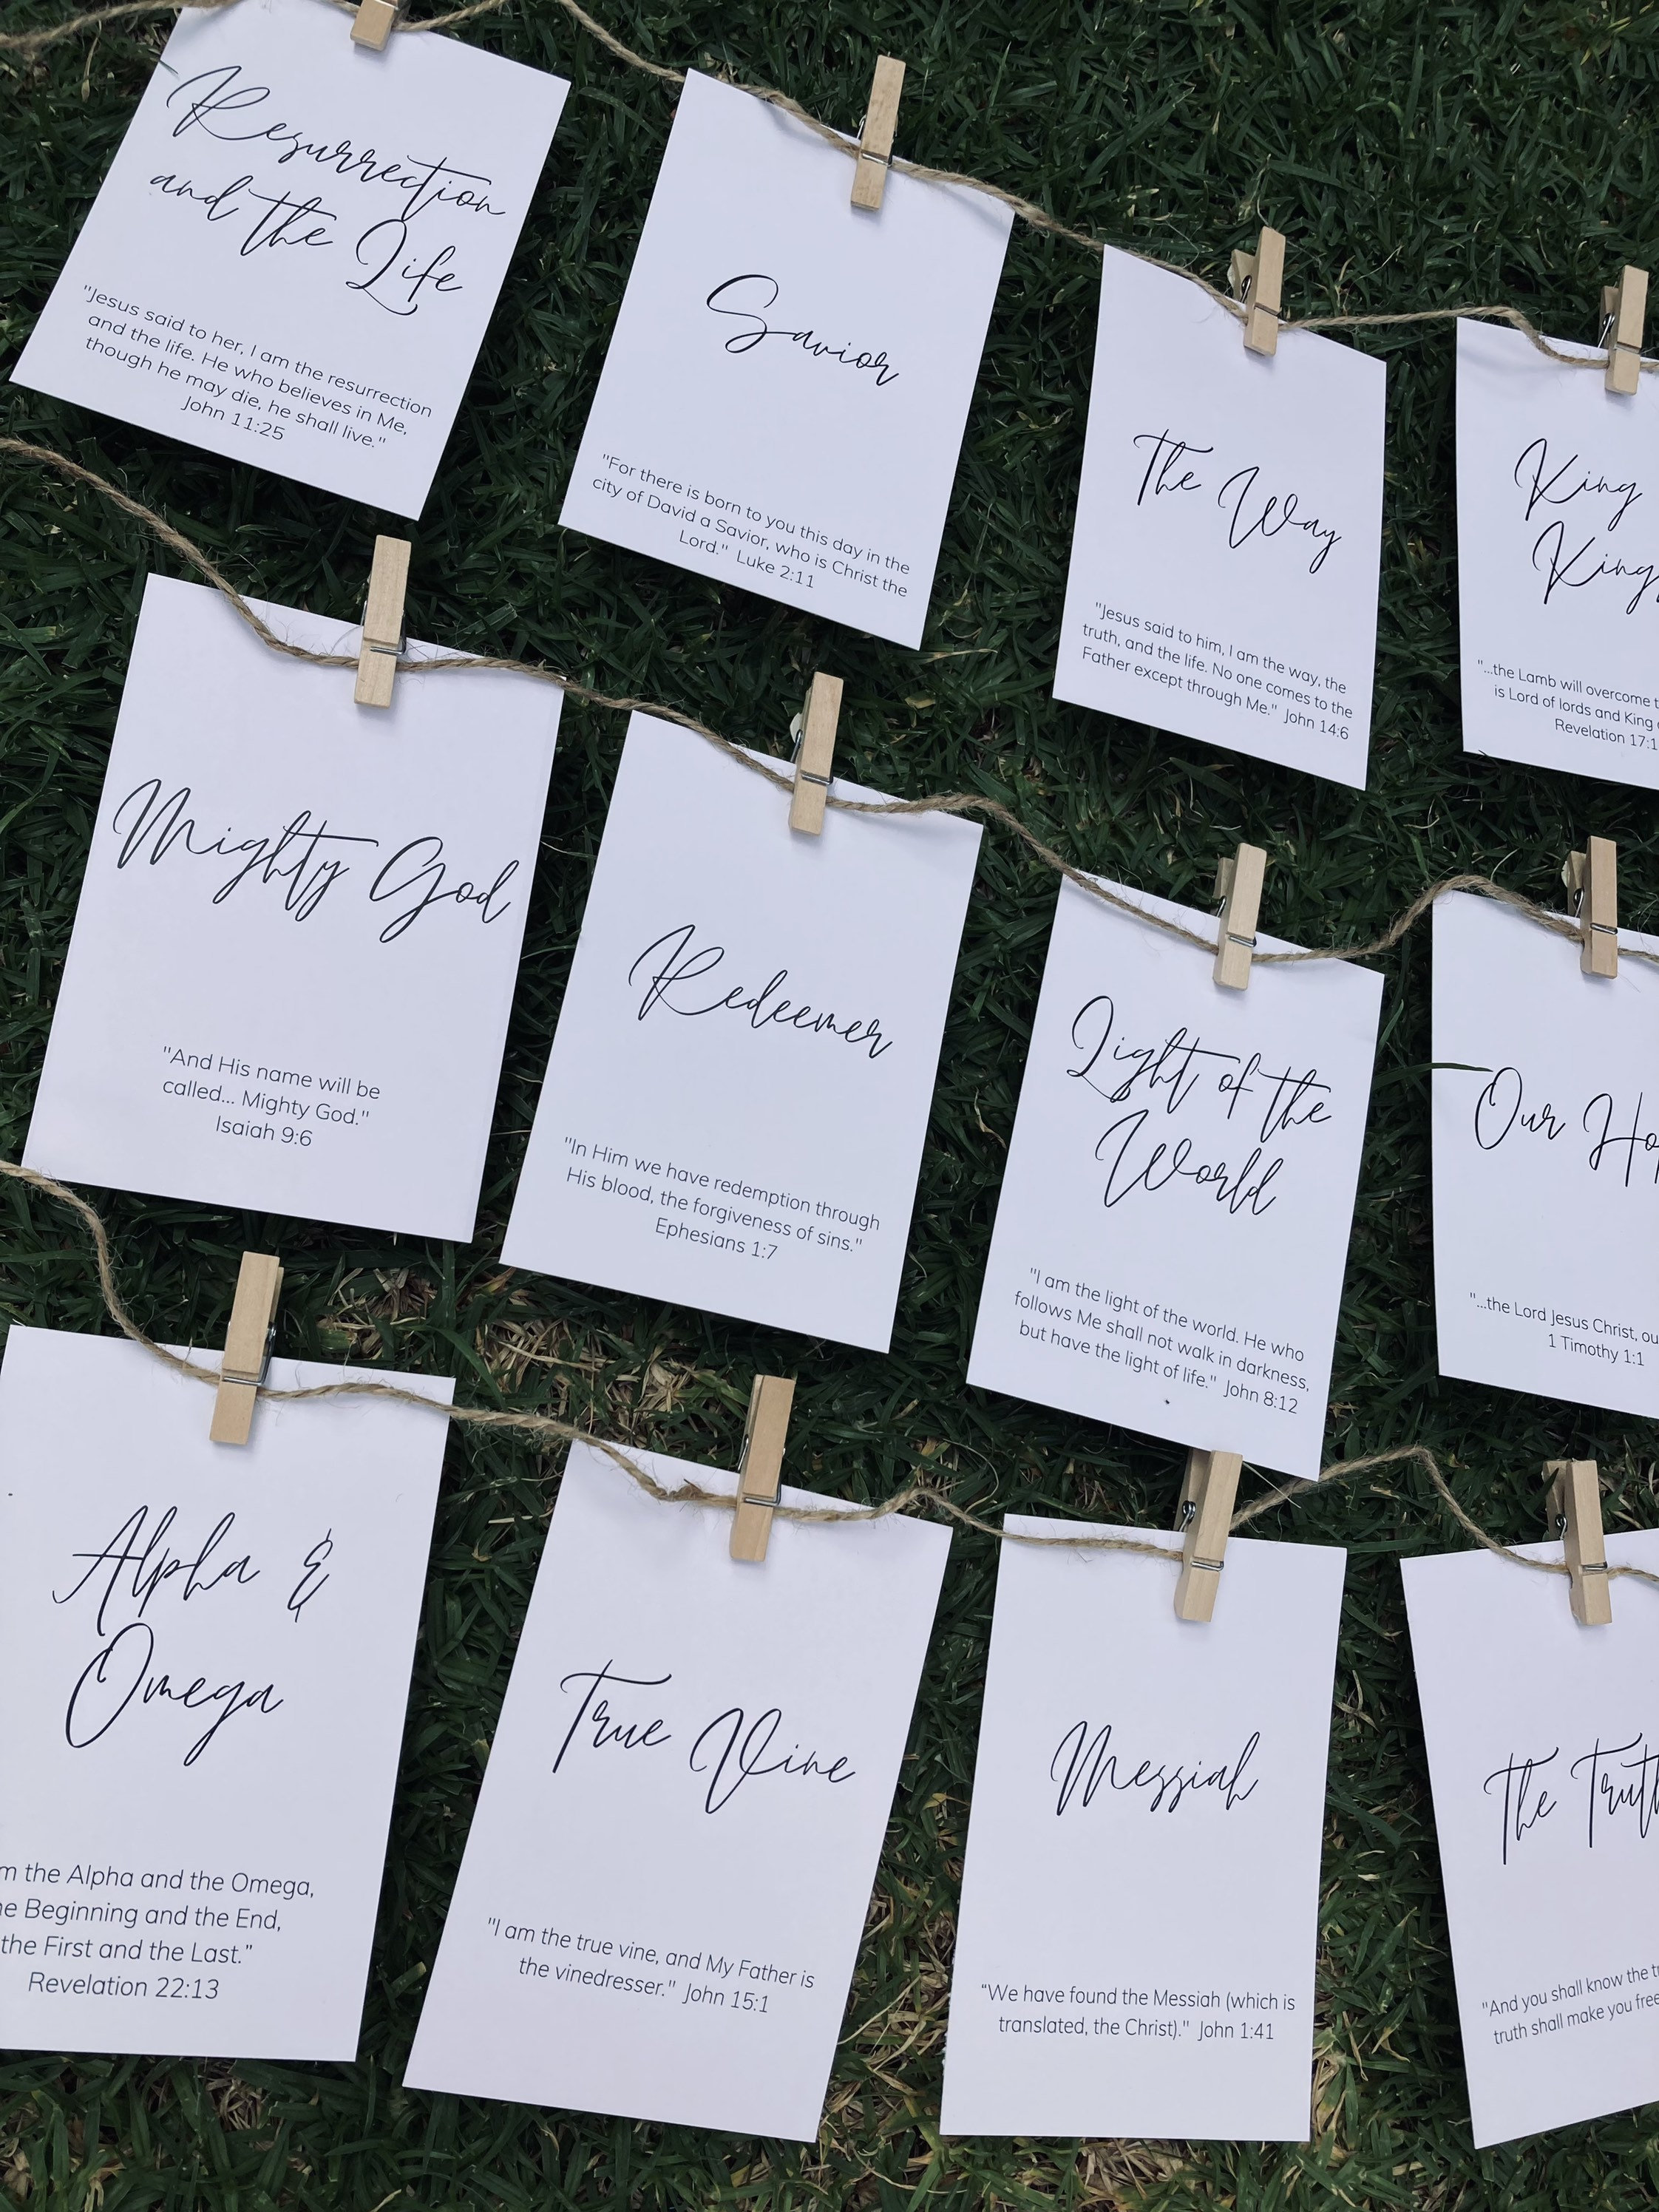 Resurrection
and the Life
"Jesus said to her, I am the resurrection
and the life. He who believes in Me,
though he may die, he shall live."
John 11:25
Savior
"For there is born to you this day in the
city of David a Savior, who is Christ the
Lord." Luke 2:11
The Way
"Jesus said to him, I am the way, the
truth, and the life. No one comes to the
Father except through Me." John 14:6
King
"...the Lamb will overcome
is Lord of lords and King
Revelation
Mighty God
"And His name will be
called... Mighty God."
Isaiah 9:6
Redeemer
"In Him we have redemption through
His blood, the forgiveness of sins."
Ephesians 1:7
Light of the
World
"I am the light of the world. He who
follows Me shall not walk in darkness,
but have the light of life." John 8:12
Our
"...the Lord Jesus Christ,
1 Timothy 1:1
Alpha &
Omega
the Alpha and the Omega,
Beginning and the End,
the First and the Last."
Revelation 22:13
True Vine
"I am the true vine, and My Father is
the vinedresser." John 15:1
Messiah
"We have found the Messiah (which is
translated, the Christ)." John 1:41
The
"And you shall know the
truth shall make you free